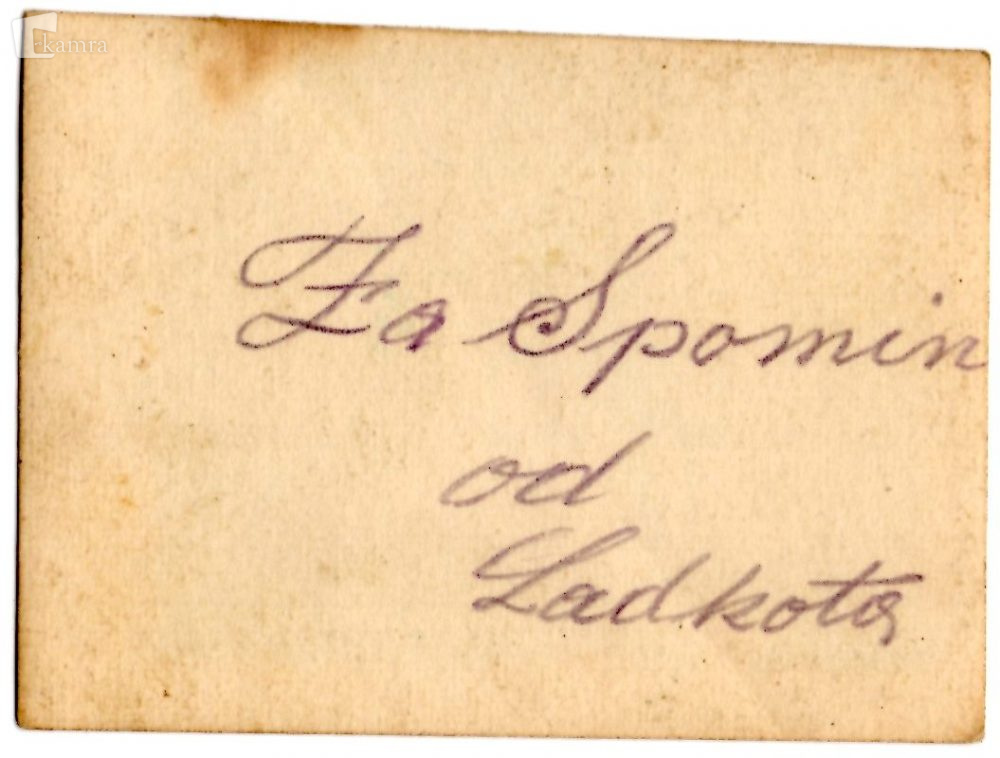 kamra
Za Spomin
od
Ladkota